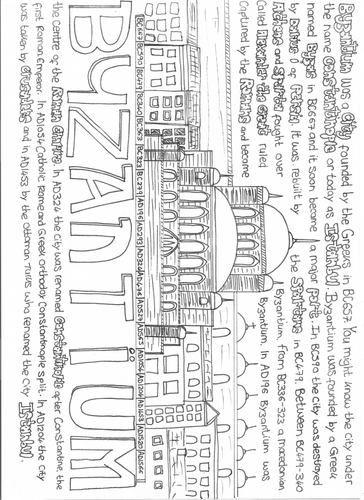 Byzantium was a city founded by the Greeks in BC657. You might know the city under
the name Constantinople or today as Istanbul. Byzantium was founded by a Greek
named Byzas in BC657 and it soon become a major port. In BC590 the city was destroyed
by Darius I of Persia. It was rebuilt by the Spartans in BC479. Between, BC479-340
Athens and Sparta fought over Byzantium, from BC336-323 a macedonian
Called Alexander the Great ruled Byzantium. In AD196 Byzantium was
Captured by the Romans and become
BC657 BC590 BC479
BYZANTIUM
the centre of the Roman empire. In AD324 the city was renamed Constantinople after Constantine, the
first Roman Emperor. In AD1054 Catholic Rome and Greek orthodox Constantinople split. In AD1204 the city
was taken by Crusaders and in AD1453 by the Ottoman Turks who renamed the city Istanbul.